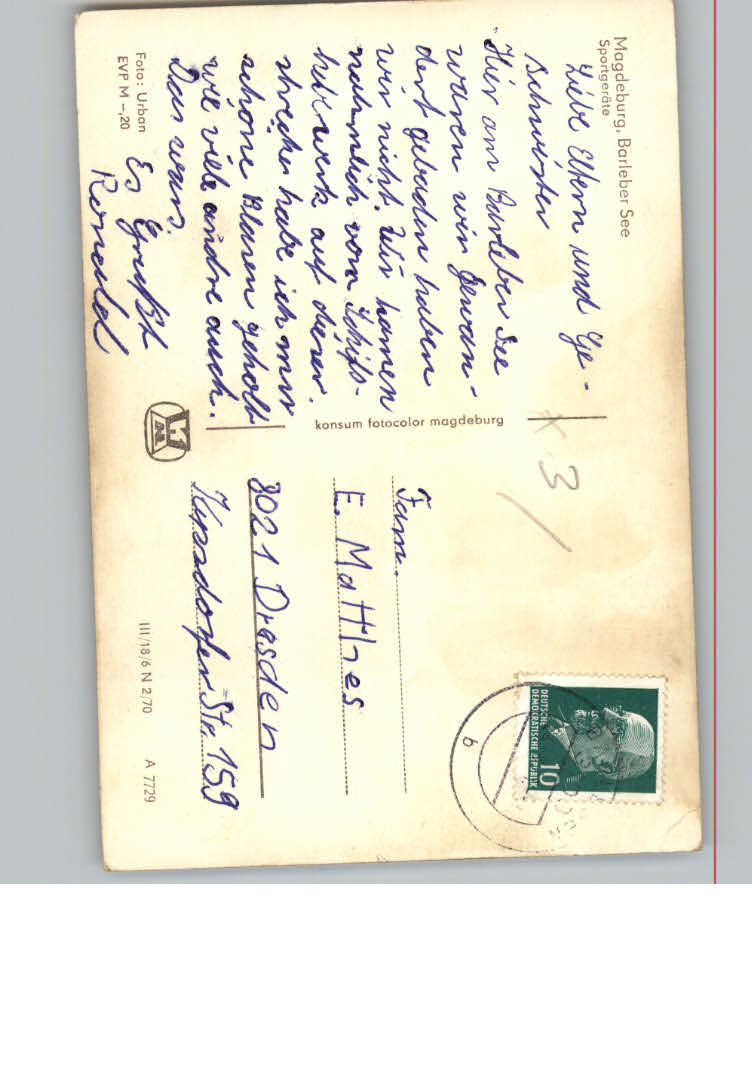 Magdeburg, Barleber See
Sportgeräte
Liebe Eltern und Ge-
schwister
Hier am Barleber See
waren wir Gewan-
dert gebaden haben
wir nicht. Wir kamen
nähmlich vom Schifs-
hebewerk auf dieser
strecke habe ich mir
schöne Blasen geholt
wie viele andre auch.
Das wars
Es Grüßt
Ronald
Foto: Urban
EVP M –,20
konsum fotocolor magdeburg
x 3
Fam.
E. Matthes
8021 Dresden
Str. 159
III/18/6 N 2/70 A 7729
DEUTSCHE
DEMOKRATISCHE REPUBLIK
10
b